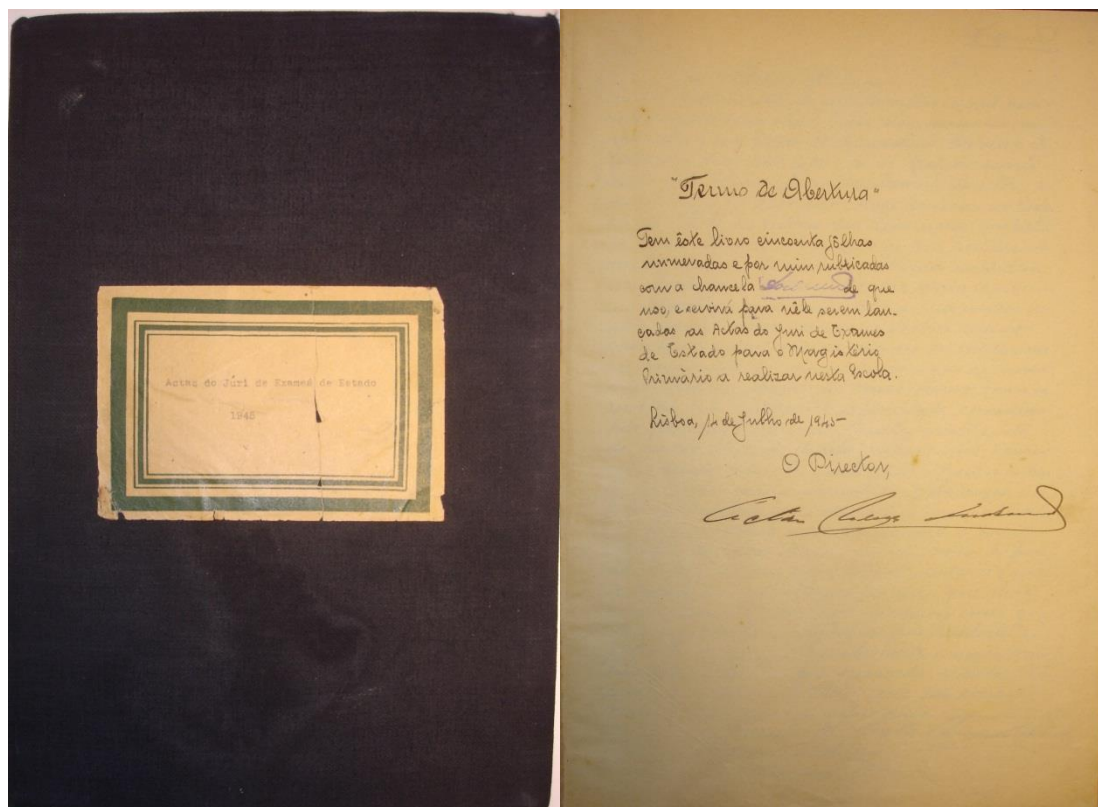 Actas do Júri de Exames de Estado
1945
"Termo de Abertura"
Tem êste livro cincoenta fôlhas
numeradas e por mim rubricadas
com a chancela de que
uso, e servirá para nêle serem lan-
çadas as Actas do Juri de Exames
de Estado para o Magistério
Primário a realizar nesta Escola.
Lisboa, 14 de Julho de 1945
O Director,